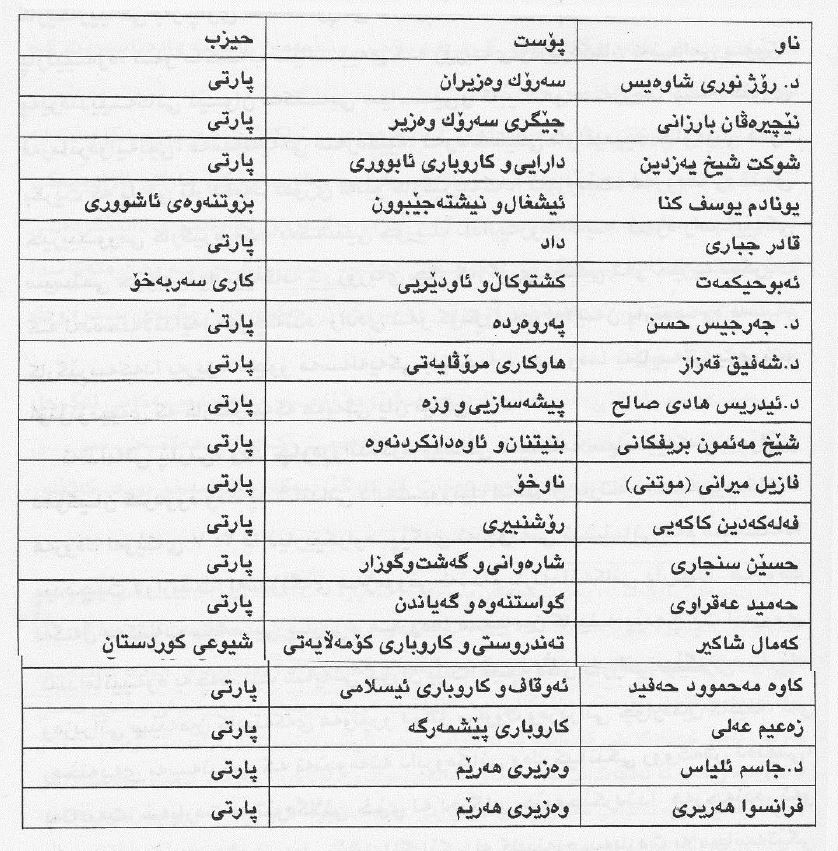 ناو پۆست حیزب
د. رۆژ نوری شاوەیس سەرۆك وەزیران پارتی
نێچیرەڤان بارزانی جێگری سەرۆك وەزیر پارتی
شوكت شیخ یەزدین دارایی و كاروباری ئابووری پارتی
یونادم یوسف كنا ئیشغال و نیشتەجێبوون بزوتنەوەی ئاشووری
قادر جباری داد پارتی
ئەبوحیكمەت كشتوكاڵ و ئاودێریی كاری سەربەخۆ
د. جەرجیس حسن پەروەردە پارتی
د.شەفیق قەزاز هاوكاری مرۆڤایەتی پارتی
د.ئیدریس هادی صالح پیشەسازیی و وزە پارتی
شێخ مەئمون بریفكانی بنیتنان و ئاوەدانكردنەوە پارتی
فازیل میرانی (موتنی) ناوخۆ پارتی
فەلەكەدین كاكەیی رۆشنبیری پارتی
حسێن سنجاری شارەوانی و گەشت وگوزار پارتی
حەمید عەقراوی گواستنەوە و گەیاندن پارتی
كەمال شاكیر تەندروستی و كاروباری كۆمەڵایەتی شیوعی كوردستان
كاوە مەحموود حەفید ئەوقاف و كاروباری ئیسلامی پارتی
زەعیم عەلی كاروباری پێشمەرگە پارتی
د.جاسم ئلیاس وەزیری هەرێم پارتی
فرانسوا هەریری وەزیری هەرێم پارتی